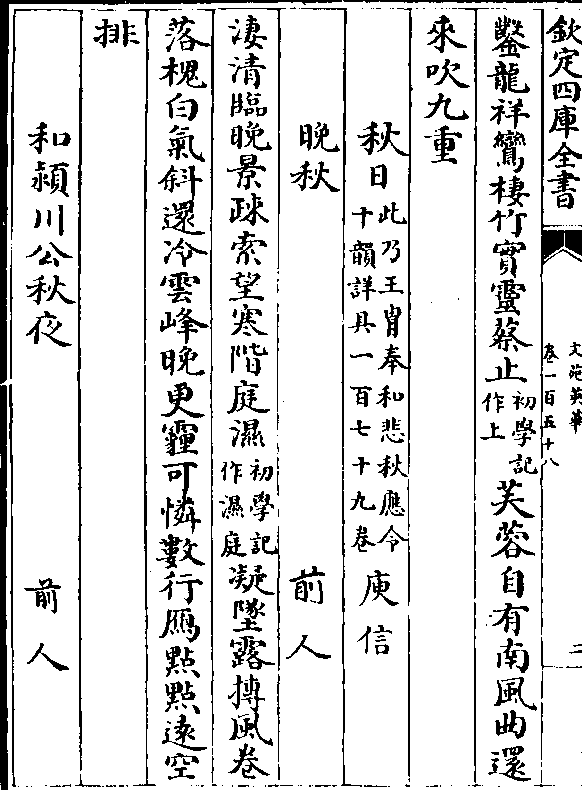 欽定四庫全書
文苑英華
卷一百五十八
二
鑿龍祥鸞棲竹實靈蔡止初學記作上芙蓉自有南風曲還
來吹九重
秋日此乃王胄奉和悲秋應令十韻詳具一百七十九卷 庾信
晩秋 前人
凄清臨晚景疎索望寒階庭濕初學記作濕庭凝墜露摶風卷
落槐白氣斜還冷雲峰晚更霾可憐數行雁點點逺空
排
和潁川公秋夜 前人